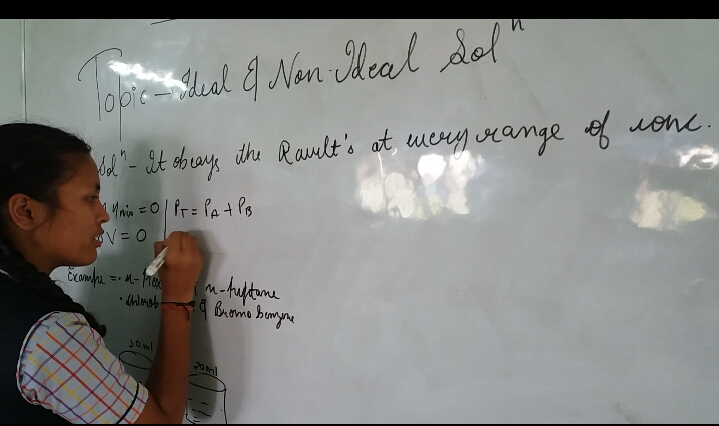 Topic - Ideal & Non-Ideal Solⁿ
Solⁿ - It obeays the Rault's at every range of conc.
mix = 0 | P_T = P_A + P_B
V = 0
Example = • n-Hex n-heptane
• chlorob & Bromo benzene
10ml
20ml